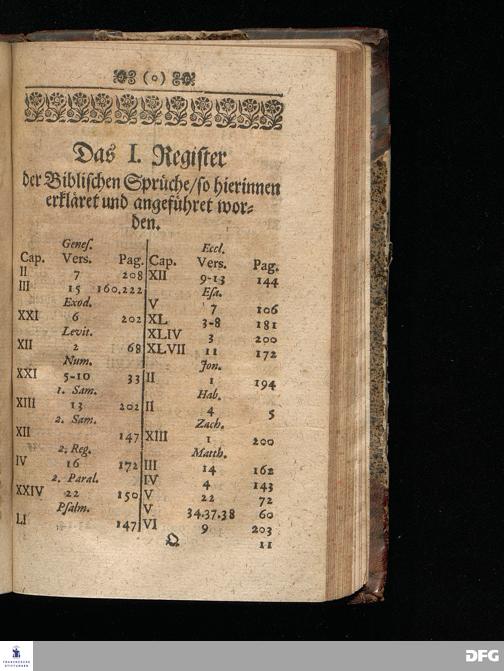 (o)
Das I. Register
der Biblischen Sprüche/so hierinnen
erkläret und angeführet wor-
den.
Genes.
Cap. Vers. Pag.
II 7 208
III 15 160.222
Exod.
XXI 6 202
Levit.
XII 2 68
Num.
XXI 5-10 33
1. Sam.
XIII 13 202
2. Sam.
XII 147
2. Reg.
IV 16 172
2. Paral.
XXIV 22 150
Psalm.
LI 147
Eccl.
Cap. Vers. Pag.
XII 9-13 144
Esa.
V 7 106
XL 3-8 181
XLIV 3 200
XLVII 11 172
Jon.
II 1 194
Hab.
II 4 5
Zach.
XIII 1 200
Matth.
III 14 162
IV 4 143
V 22 72
V 34.37.38 60
VI 9 203
Q 11
FRANCKESCHE
STIFTUNGEN
DFG